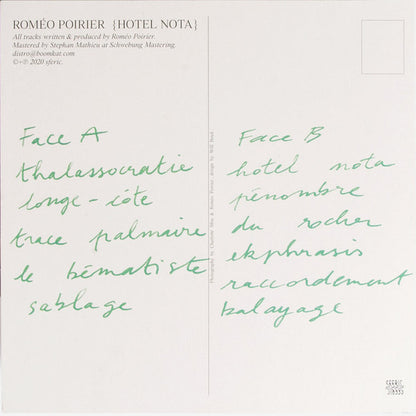 ROMÉO POIRIER {HOTEL NOTA}
All tracks written & produced by Roméo Poirier.
Mastered by Stephan Mathieu at Schwebung Mastering.
distro@boomkat.com
©+℗ 2020 sferic.
Face A
thalassocratie
longe-côte
trace palmaire
le bématiste
sablage
Face B
hotel nota
pénombre
du rocher
ekphrasis
raccordement
balayage